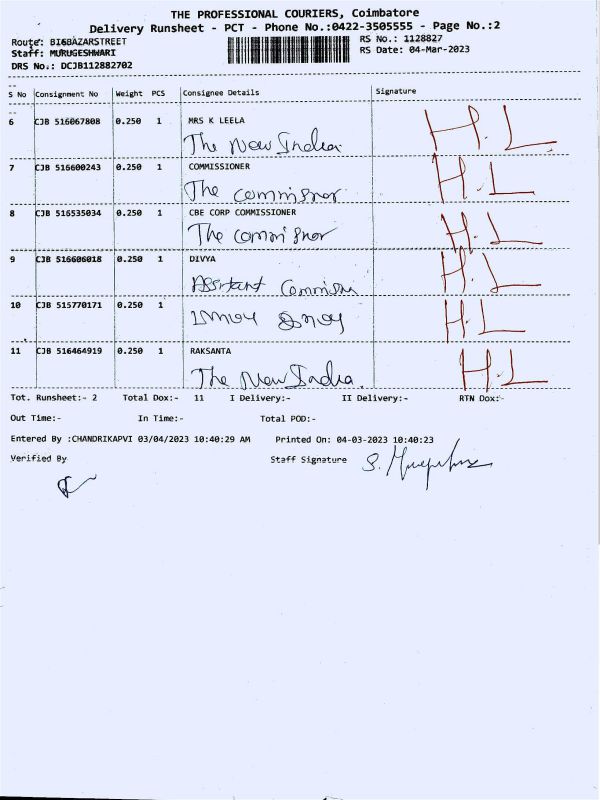 THE PROFESSIONAL COURIERS, Coimbatore
Delivery Runsheet - PCT - Phone No.:0422-3505555 - Page No.:2
Route: BIGBAZARSTREET
RS No.: 1128827
Staff: MURUGESHWARI
RS Date: 04-Mar-2023
DRS No.: DCJB112882702
S No Consignment No Weight PCS Consignee Details Signature
6 CJB 516067808 0.250 1 MRS K LEELA
The New India H.L
7 CJB 516600243 0.250 1 COMMISSIONER
The commisnor H.L
8 CJB 516535034 0.250 1 CBE CORP COMMISSIONER
The commisnor H.L
9 CJB 516606018 0.250 1 DIVYA
H.L
10 CJB 515770171 0.250 1
H.L
11 CJB 516464919 0.250 1 RAKSANTA
The New India. H.L
Tot. Runsheet:- 2 Total Dox:- 11 I Delivery:- II Delivery:- RTN Dox:-
Out Time:- In Time:- Total POD:-
Entered By :CHANDRIKAPVI 03/04/2023 10:40:29 AM Printed On: 04-03-2023 10:40:23
Verified By Staff Signature